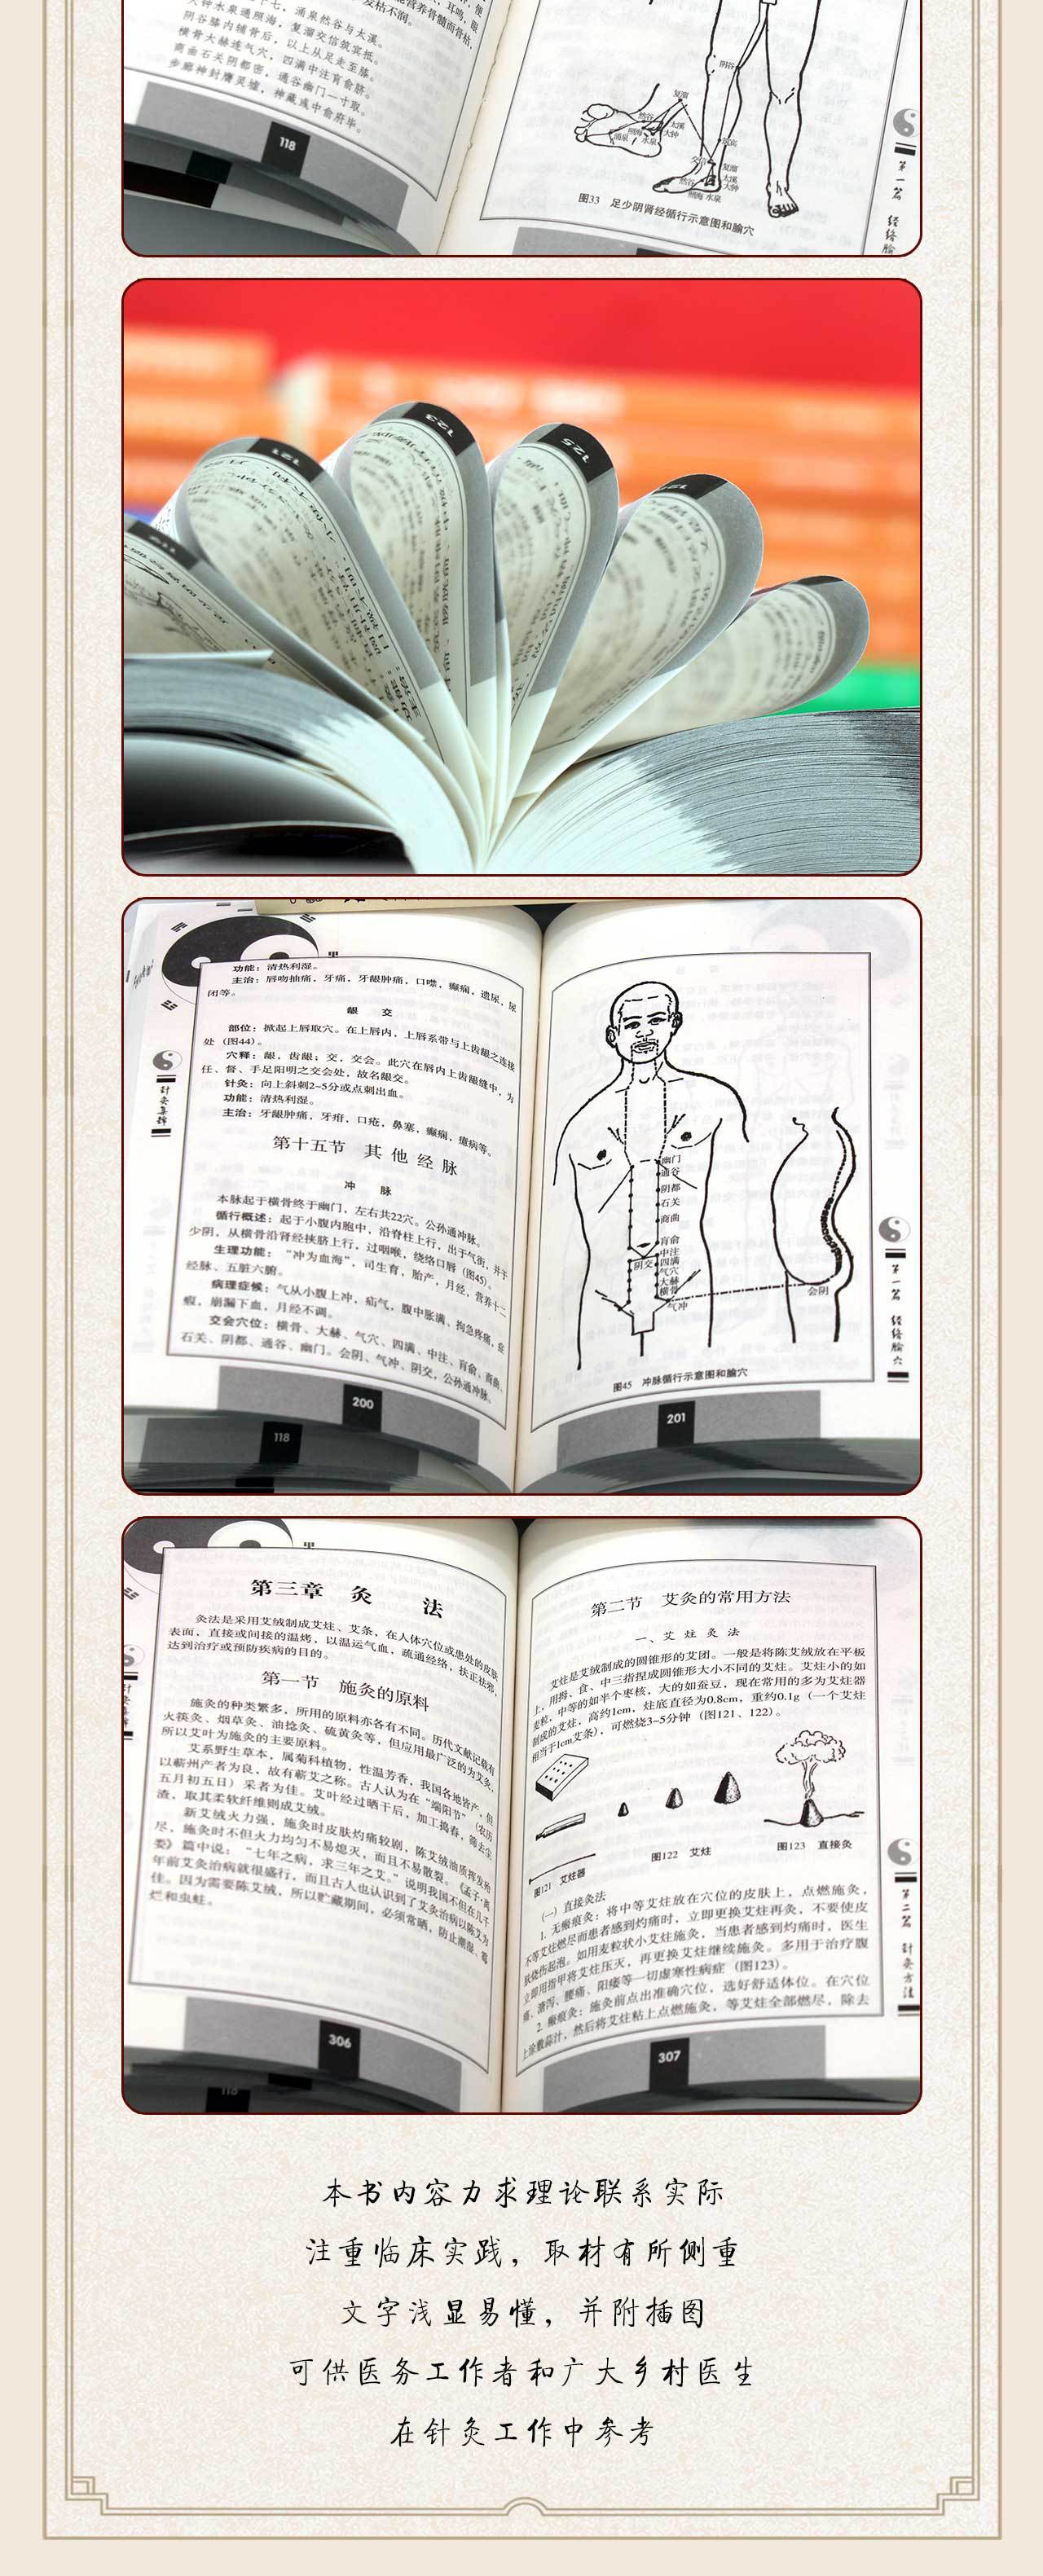 大钟水泉通照海，复溜交信筑宾抵。
阴谷膝内辅骨后，以上从足走至膝。
横骨大赫连气穴，四满中注肓俞脐。
商曲石关阴都密，通谷幽门一寸取。
步廊神封膺灵墟，神藏彧中俞府毕。
118
阴谷
复溜
然谷
太溪
大钟
涌泉
照海
水泉
交信
复溜
太溪
大钟
然谷
照海 水泉
图33 足少阴肾经循行示意图和腧穴
第一篇 经络腧
121
123
125
功能：清热利湿。
主治：唇吻抽痛，牙痛，牙龈肿痛，口噤，癫痫，遗尿，尿
闭等。
龈 交
部位：掀起上唇取穴。在上唇内，上唇系带与上齿龈之连接
处（图44）。
穴释：龈，齿龈；交，交会。此穴在唇内上齿龈缝中，为
任、督、手足阳明之交会处，故名龈交。
针灸：向上斜刺2~5分或点刺出血。
功能：清热利湿。
主治：牙龈肿痛，牙疳，口疮，鼻塞，癫痫，瘛病等。
第十五节 其他经脉
冲 脉
本脉起于横骨终于幽门，左右共22穴。公孙通冲脉。
循行概述：起于小腹内胞中，沿脊柱上行，出于气街，并于
少阴，从横骨沿肾经挟脐上行，过咽喉，绕络口唇（图45）。
生理功能：“冲为血海”，司生育，胎产，月经，营养十二
经脉、五脏六腑。
病理症候：气从小腹上冲，疝气，腹中胀满，拘急疼痛，症
瘕，崩漏下血，月经不调。
交会穴位：横骨、大赫、气穴、四满、中注、肓俞、商曲、
石关、阴都、通谷、幽门。会阴、气冲、阴交，公孙通冲脉。
200
118
针灸集锦
幽门
通谷
阴都
石关
商曲
肓俞
中注
四满
阴交
气穴
大赫
横骨
气冲
会阴
图45 冲脉循行示意图和腧穴
201
第一篇 经络腧穴
第三章 灸 法
灸法是采用艾绒制成艾炷、艾条，在人体穴位或患处的皮肤
表面，直接或间接的温烤，以温运气血，疏通经络，扶正祛邪，
达到治疗或预防疾病的目的。
第一节 施灸的原料
施灸的种类繁多，所用的原料亦各有不同。历代文献记载有
火筷灸、烟草灸、油捻灸、硫黄灸等，但应用最广泛的为艾灸，
所以艾叶为施灸的主要原料。
艾系野生草本，属菊科植物，性温芳香，我国各地皆产，但
以蕲州产者为良，故有蕲艾之称。古人认为在“端阳节”（农历
五月初五日）采者为佳。艾叶经过晒干后，加工捣舂，筛去尘
渣，取其柔软纤维则成艾绒。
新艾绒火力强，施灸时皮肤灼痛较剧，陈艾绒油质挥发殆
尽，施灸时不但火力均匀不易熄灭，而且不易散裂。《孟子·离
娄》篇中说：“七年之病，求三年之艾。”说明我国不但在几千
年前艾灸治病就很盛行，而且古人也认识到了艾灸治病以陈艾为
佳。因为需要陈艾绒，所以贮藏期间，必须常晒，防止潮湿、霉
烂和虫蛀。
306
118
第二节 艾灸的常用方法
一、艾炷灸法
艾炷是艾绒制成的圆锥形的艾团。一般是将陈艾绒放在平板
上，用拇、食、中三指捏成圆锥形大小不同的艾炷。艾炷小的如
麦粒，中等的如半个枣核，大的如蚕豆，现在常用的多为艾炷器
制成的艾炷，高约1cm，炷底直径为0.8cm，重约0.1g（一个艾炷
相当于1cm艾条），可燃烧3~5分钟（图121、122）。
图121 艾炷器
图122 艾炷
图123 直接灸
（一）直接灸法
1. 无瘢痕灸：将中等艾炷放在穴位的皮肤上，点燃施灸，
不等艾炷燃尽而患者感到灼痛时，立即更换艾炷再灸，不要使皮
肤烧伤起泡。如用麦粒状小艾炷施灸，当患者感到灼痛时，医生
立即用指甲将艾炷压灭，再更换艾炷继续施灸。多用于治疗腹
痛、溏泻、腰痛、阳痿等一切虚寒性病症（图123）。
2. 瘢痕灸：施灸前点出准确穴位，选好舒适体位。在穴位
上涂敷蒜汁，然后将艾炷粘上点燃施灸，等艾炷全部燃尽，除去
307
第二篇 针灸方法
本书内容力求理论联系实际
注重临床实践，取材有所侧重
文字浅显易懂，并附插图
可供医务工作者和广大乡村医生
在针灸工作中参考